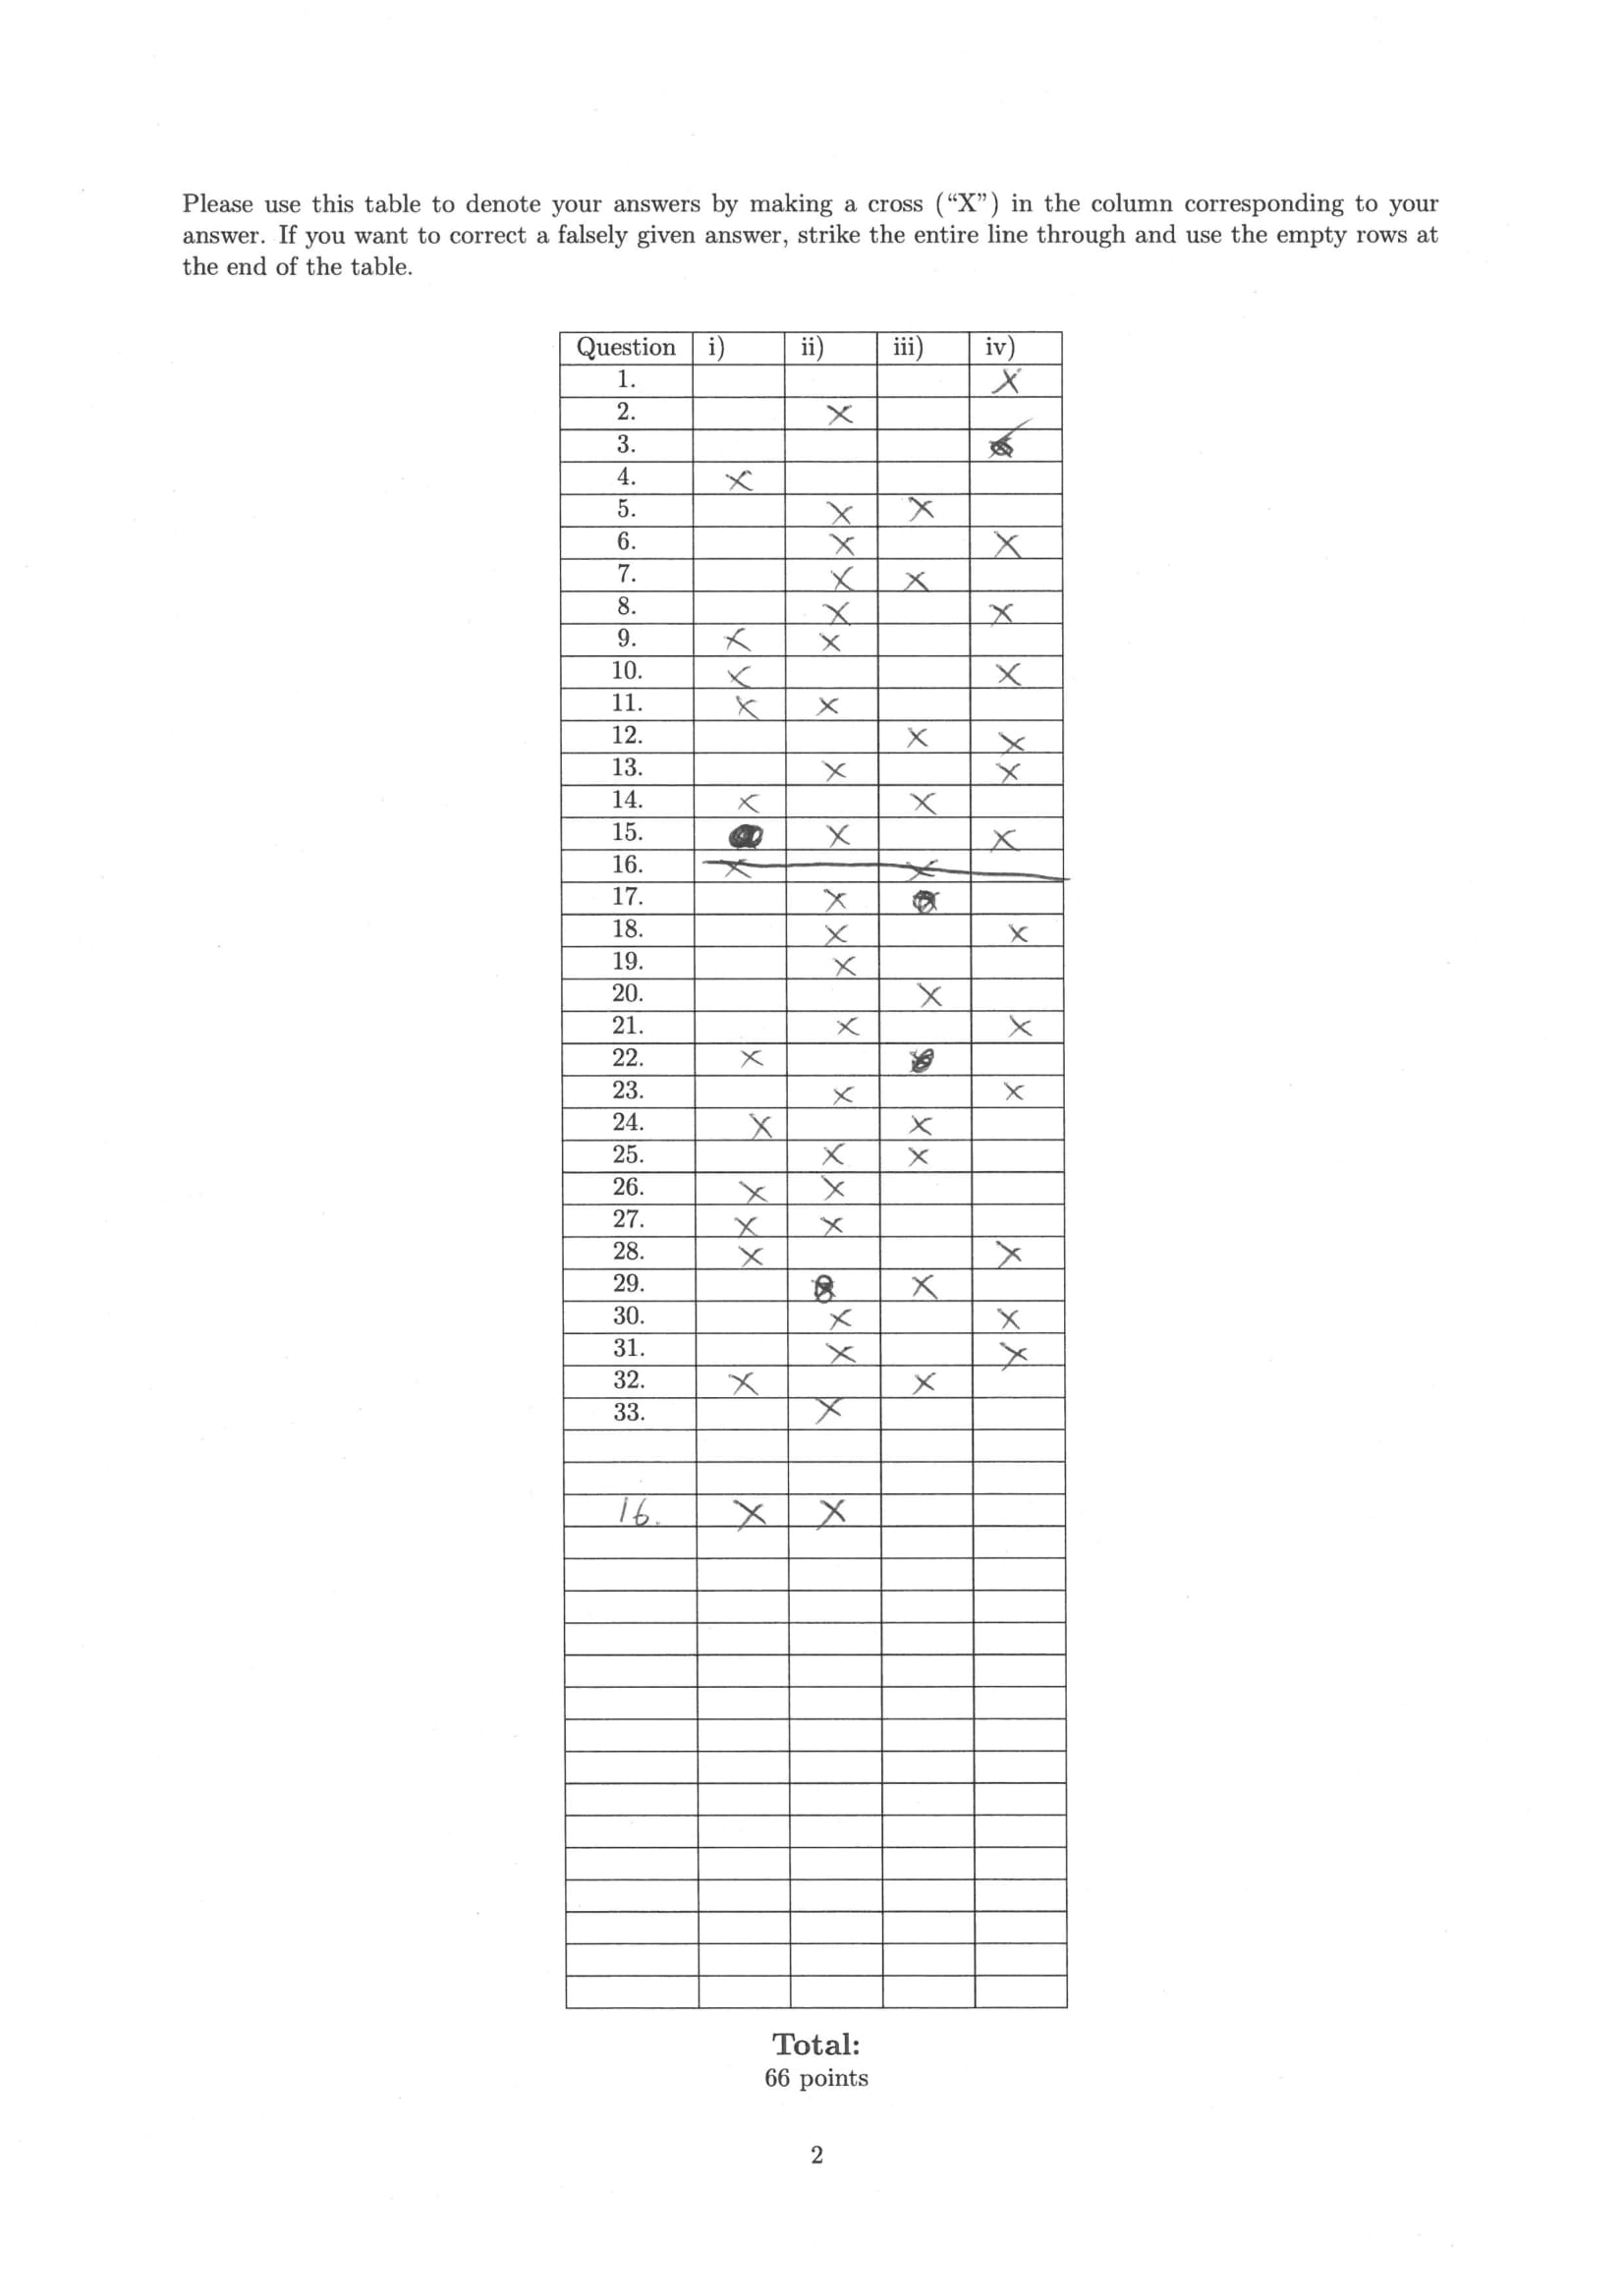 Please use this table to denote your answers by making a cross (“X”) in the column corresponding to your
answer. If you want to correct a falsely given answer, strike the entire line through and use the empty rows at
the end of the table.
Question i) ii) iii) iv)
1. X
2. X
3.
4. X
5. X X
6. X X
7. X X
8. X X
9. X X
10. X X
11. X X
12. X X
13. X X
14. X X
15. X X
16. X X
17. X
18. X X
19. X
20. X
21. X X
22. X
23. X X
24. X X
25. X X
26. X X
27. X X
28. X X
29. X
30. X X
31. X X
32. X X
33. X
16. X X
Total:
66 points
2